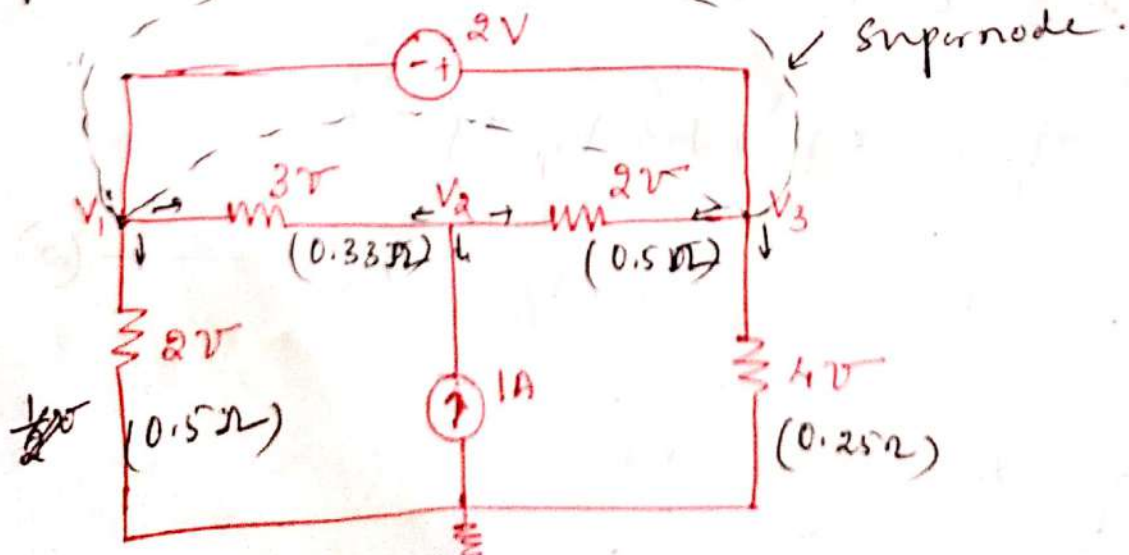 2V
- +
supernode.
V1 3℧ V2 2℧ V3
(0.33Ω) (0.5Ω)
2℧ 1A 4℧
(0.5Ω) (0.25Ω)